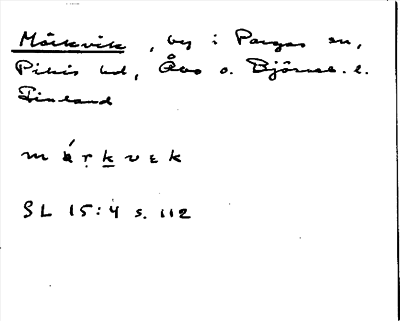 Mörkvik, by i Pargas sn,
Pikis hd, Åbo o. Björneb. l.
Finland
m ŕ̥ k v ɛ k
SL 15:4 s. 112